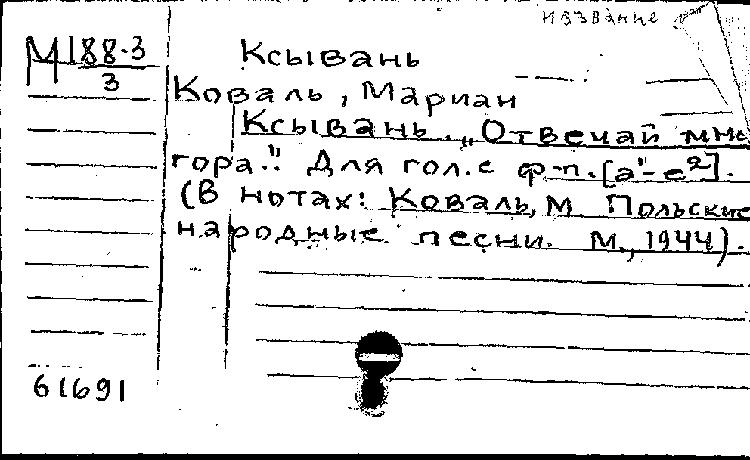 название
М 188-3
3
Ксывань
Коваль, Мариан
Ксывань. "Отвечай мне
гора." Для гол. с ф-п. [а¹-е²].
(В нотах: Коваль, М Польские
народные песни. М., 1944).
61691